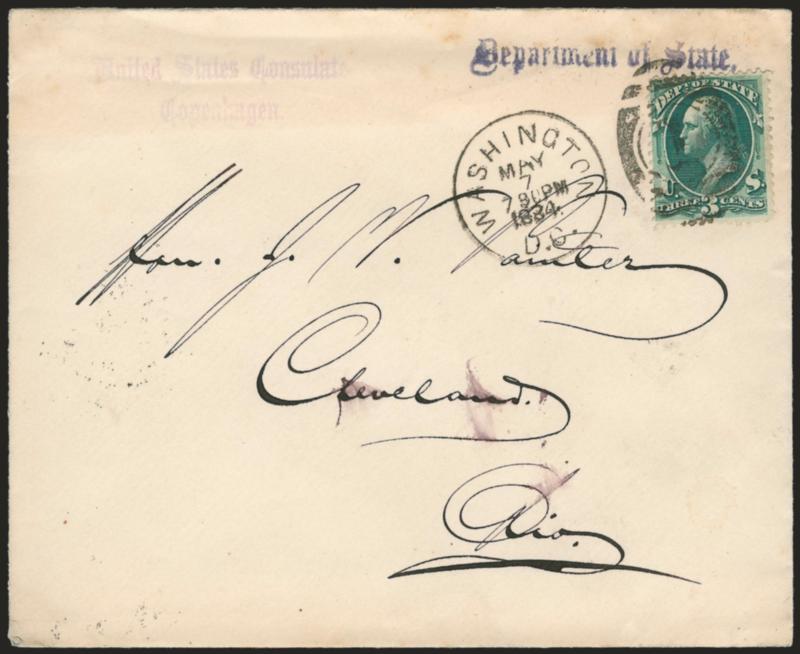 United States Consulate
Copenhagen.
Department of State.
WASHINGTON
MAY
7
730PM
1884.
D.C.
DEPT. OF STATE
U. S.
THREE 3 CENTS
Hon. J. V. Painter
Cleveland.
Ohio.